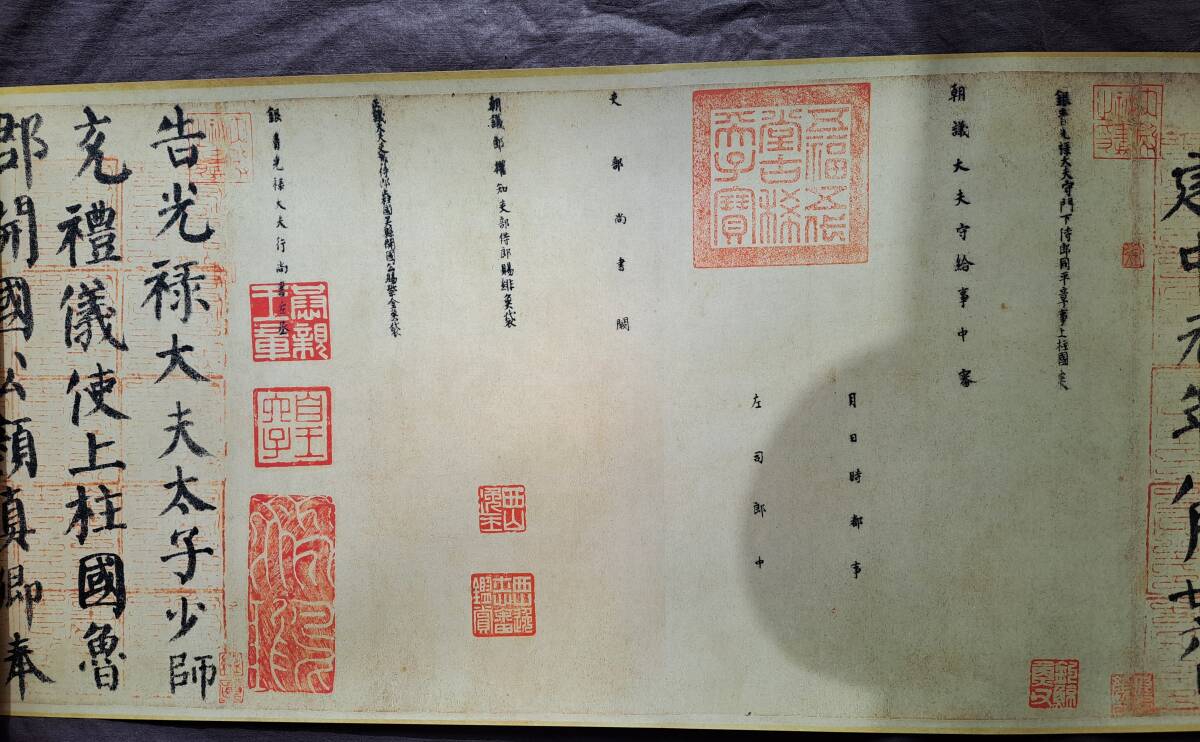 建中元年八月廿
銀青光祿大夫守門下侍郎同平章事上柱國炎
朝議大夫守給事中審
月日時都事
左司郎中
五福五代堂古稀天子寶
吏部尚書闕
朝議郎權知吏部侍郎賜緋魚袋
西山逸士
正議大夫吏部侍郎吳縣開國公賜紫金魚袋
銀青光祿大夫行尚書左丞
恭親王章
告光祿大夫太子少師
充禮儀使上柱國魯
郡開國公顏真卿奉